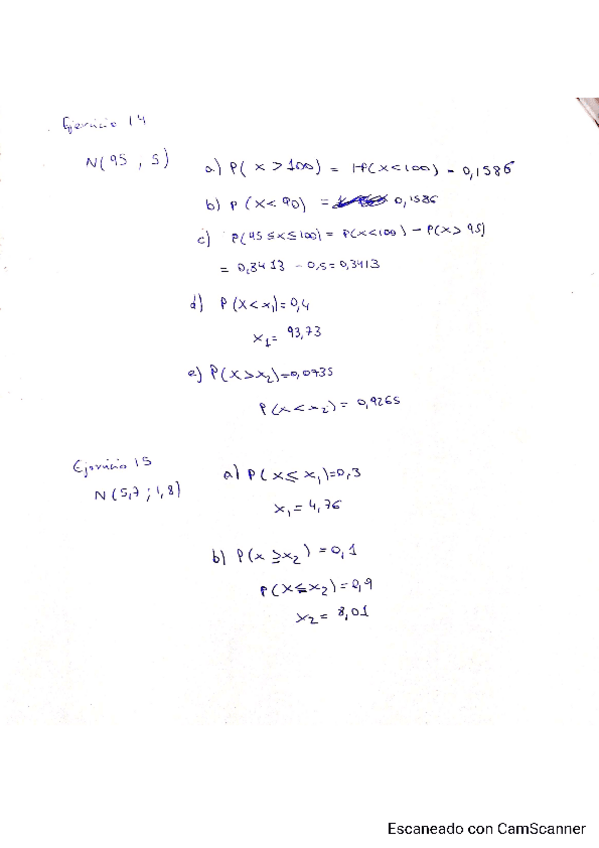 Ejercicio 14
N(95 , 5)
a) P( x > 100) = 1-P(x<100) = 0,1586
b) P (x < 90) = 0,1586
c) P(95 ≤ x ≤ 100) = P(x<100) - P(x> 95)
= 0,3413 - 0,5 = 0,3413
d) P (x < x₁) = 0,4
x₁= 93,73
e) P(x > x₂) = 0,0735
P(x < x₂) = 0,9265
Ejercicio 15
N (5,7 ; 1,8)
a) P( x ≤ x₁) = 0,3
x₁ = 4,76
b) P(x ≥ x₂) = 0,1
P(x ≤ x₂) = 0,9
x₂ = 8,01
Escaneado con CamScanner